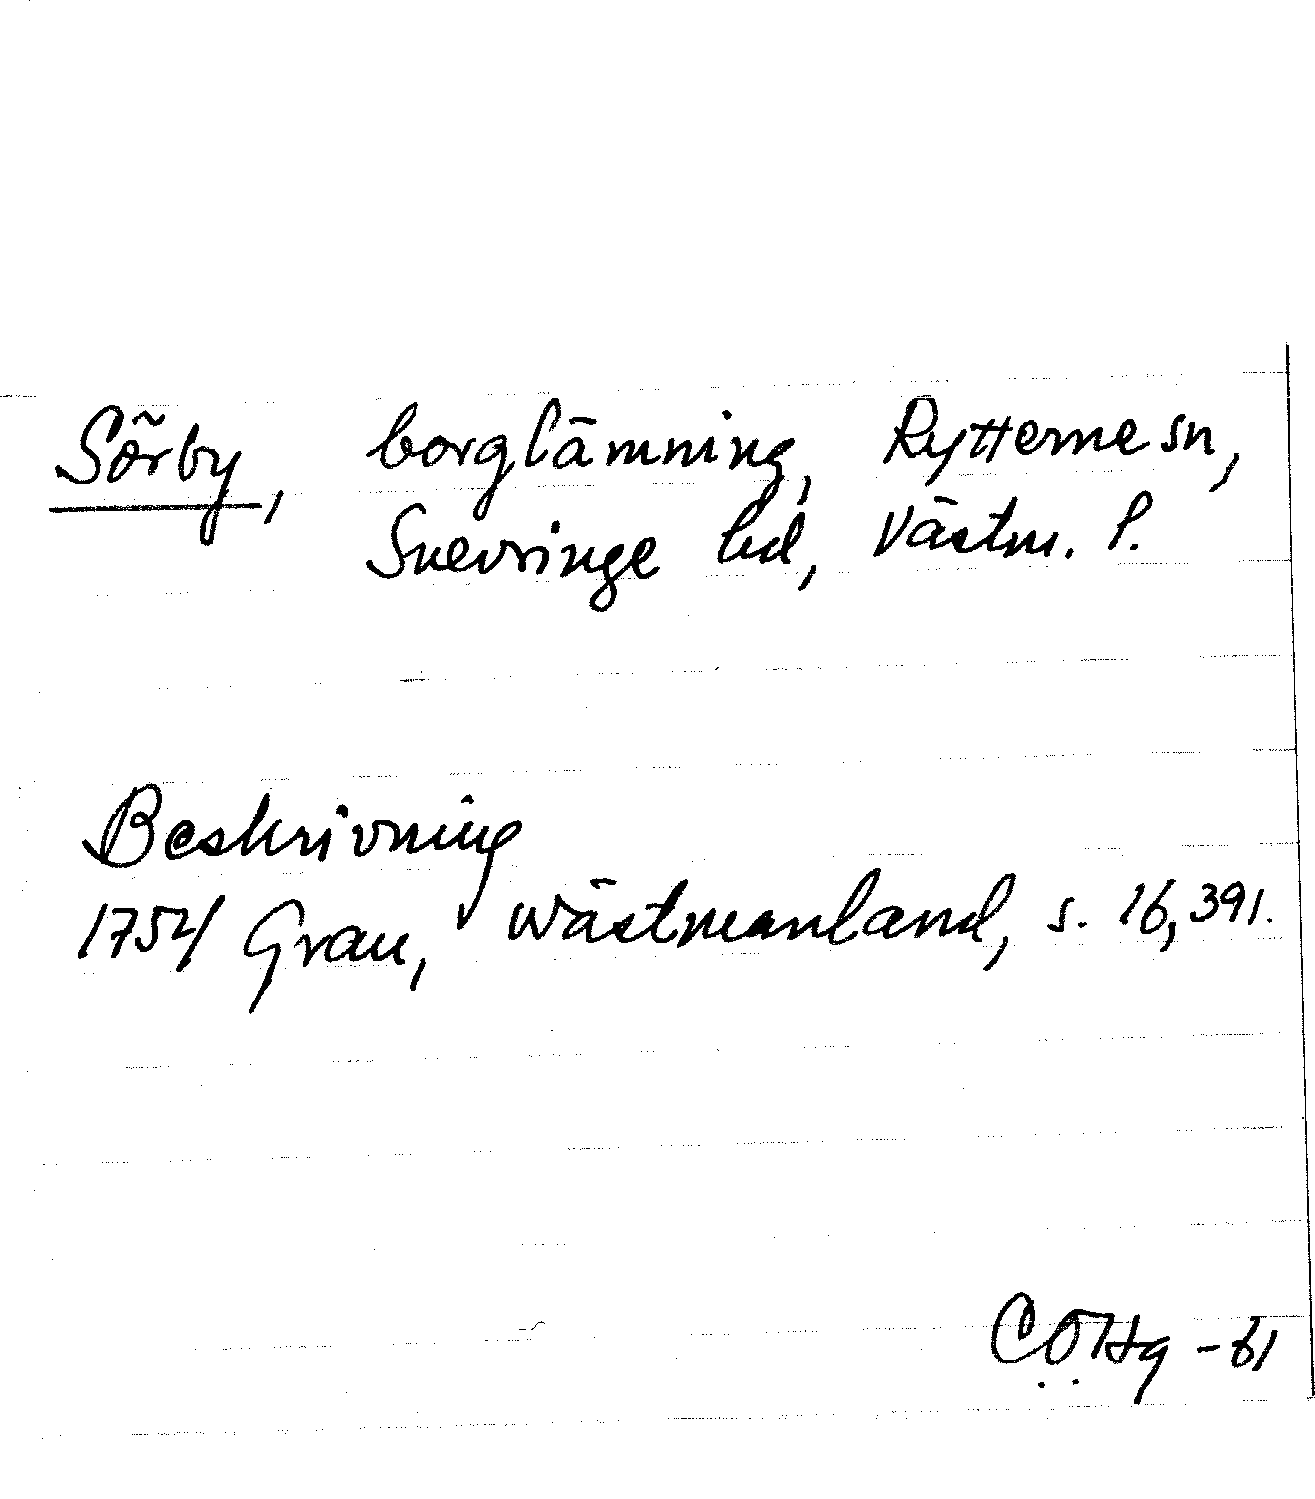 Sörby, borglämning, Rytterne sn,
Snevringe hd, Västm. l.
Beskrivning
1754 Grau, Wästmanland, s. 16, 391.
-61